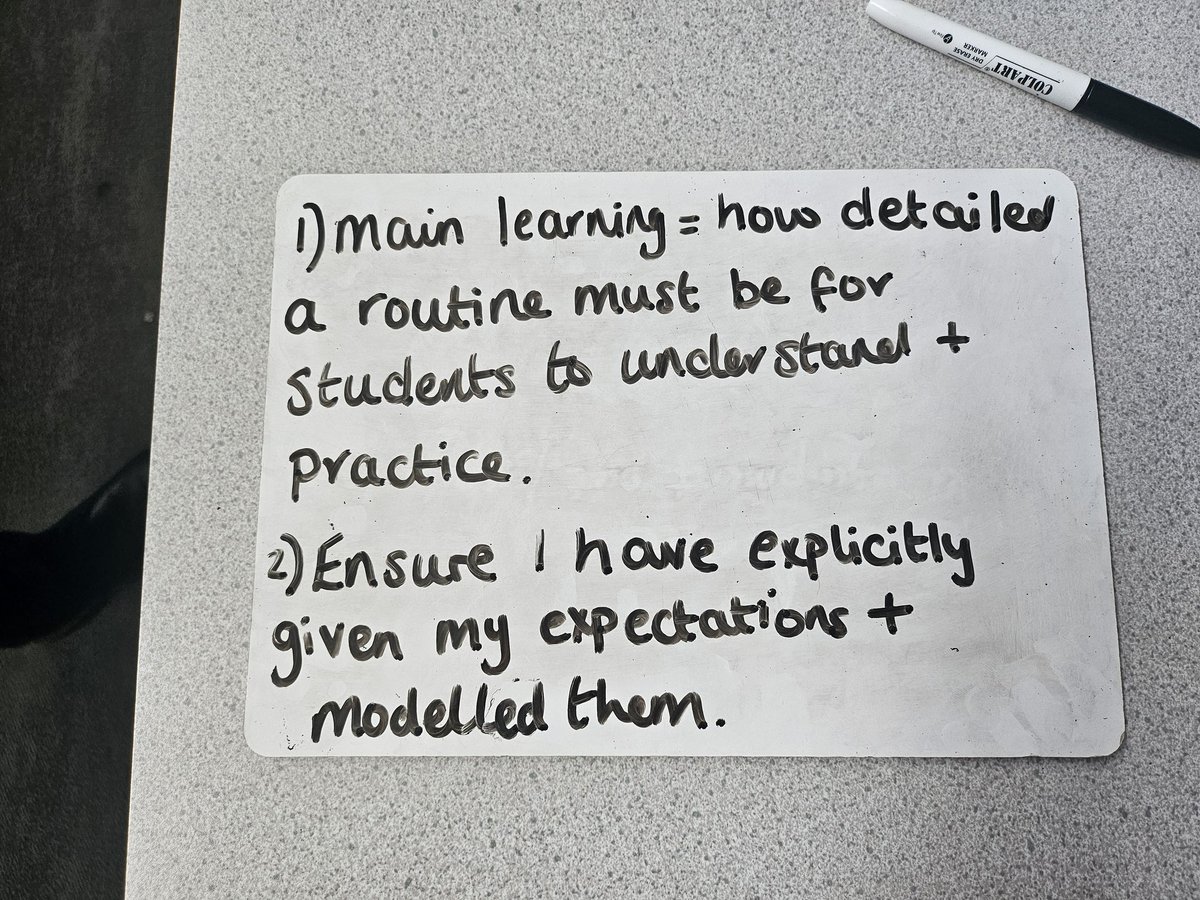 1) main learning = how detailed
a routine must be for
students to understand +
practice.
2) Ensure I have explicitly
given my expectations +
modelled them.
COLPART
DRY ERASE
MARKER